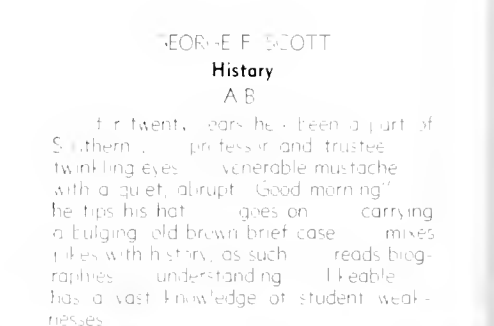 GEORGE F. SCOTT
History
A B
for twenty years he's been a part of
Southern professor and trustee
twinkling eyes venerable mustache
with a quiet, abrupt "Good morning"
he tips his hat goes on carrying
a bulging old brown brief case mixes
jokes with history, as such reads biog-
raphies understanding likeable
has a vast knowledge of student weak-
nesses